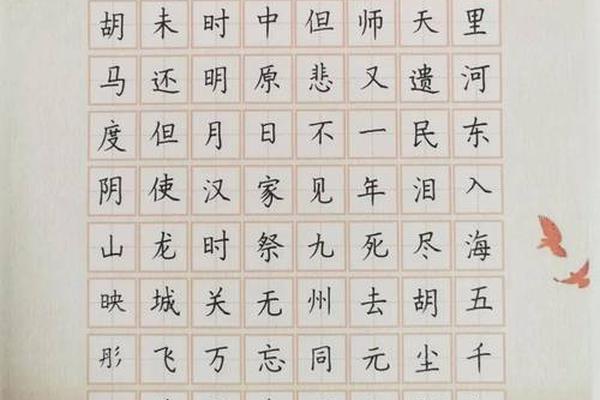 里河东入海五千
天遗民泪尽胡尘
师又一年死去元
但悲不见九州同
中原日家祭无忘
时明月汉时关万
未还但使龙城飞
胡马度阴山映彤